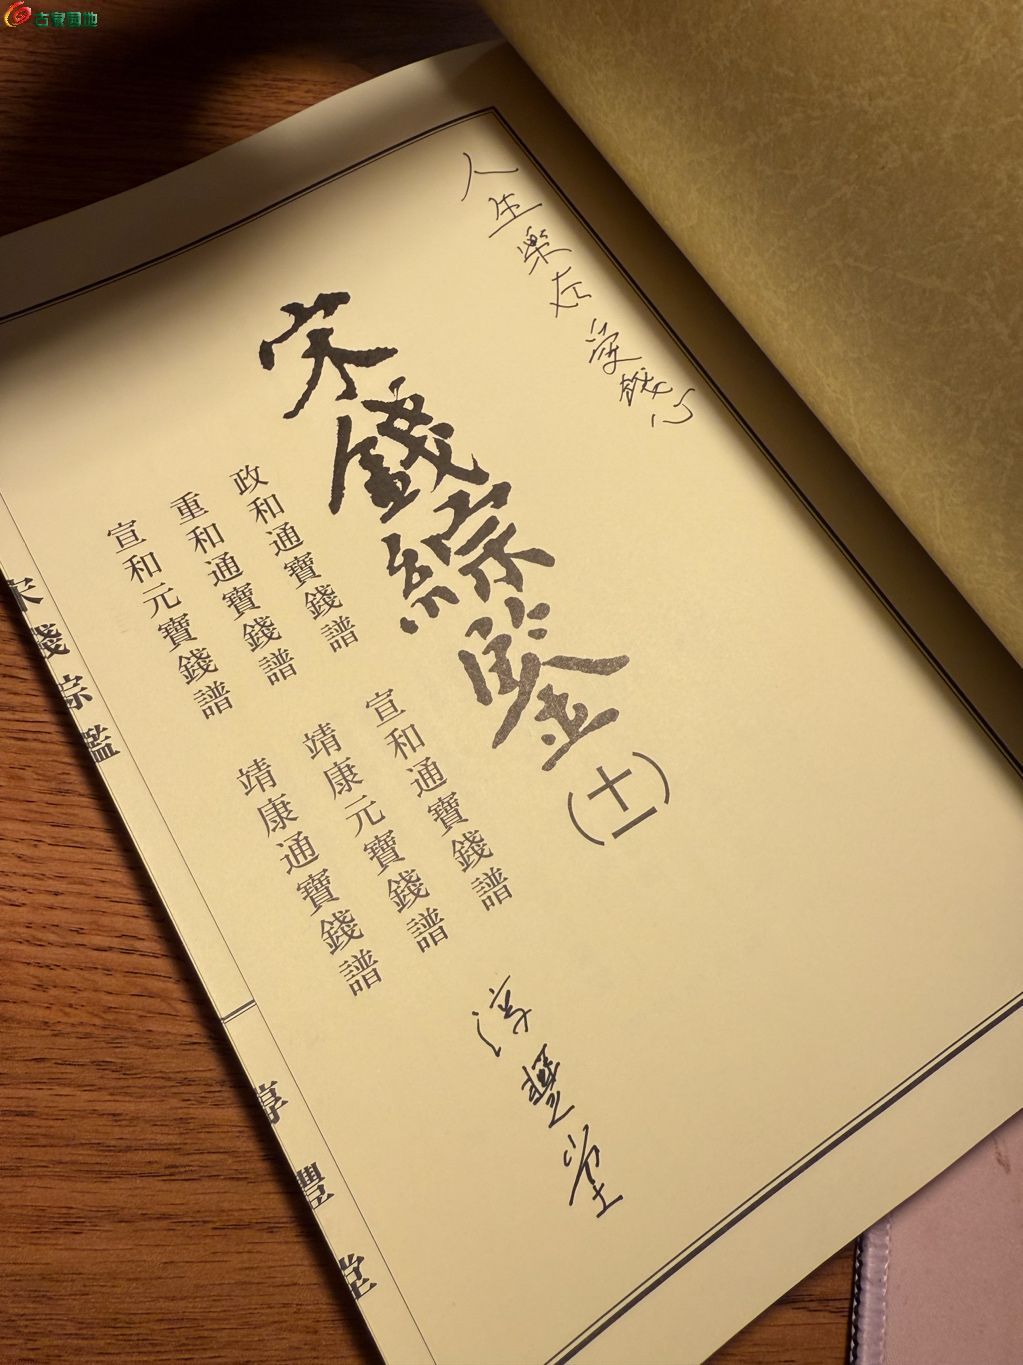 古泉园地
人生樂在爱錢心
宋錢綜鑒(十一)
政和通寶錢譜
重和通寶錢譜
宣和元寶錢譜
宣和通寶錢譜
靖康元寶錢譜
靖康通寶錢譜
淳豐堂
宋錢綜鑑
淳豐堂